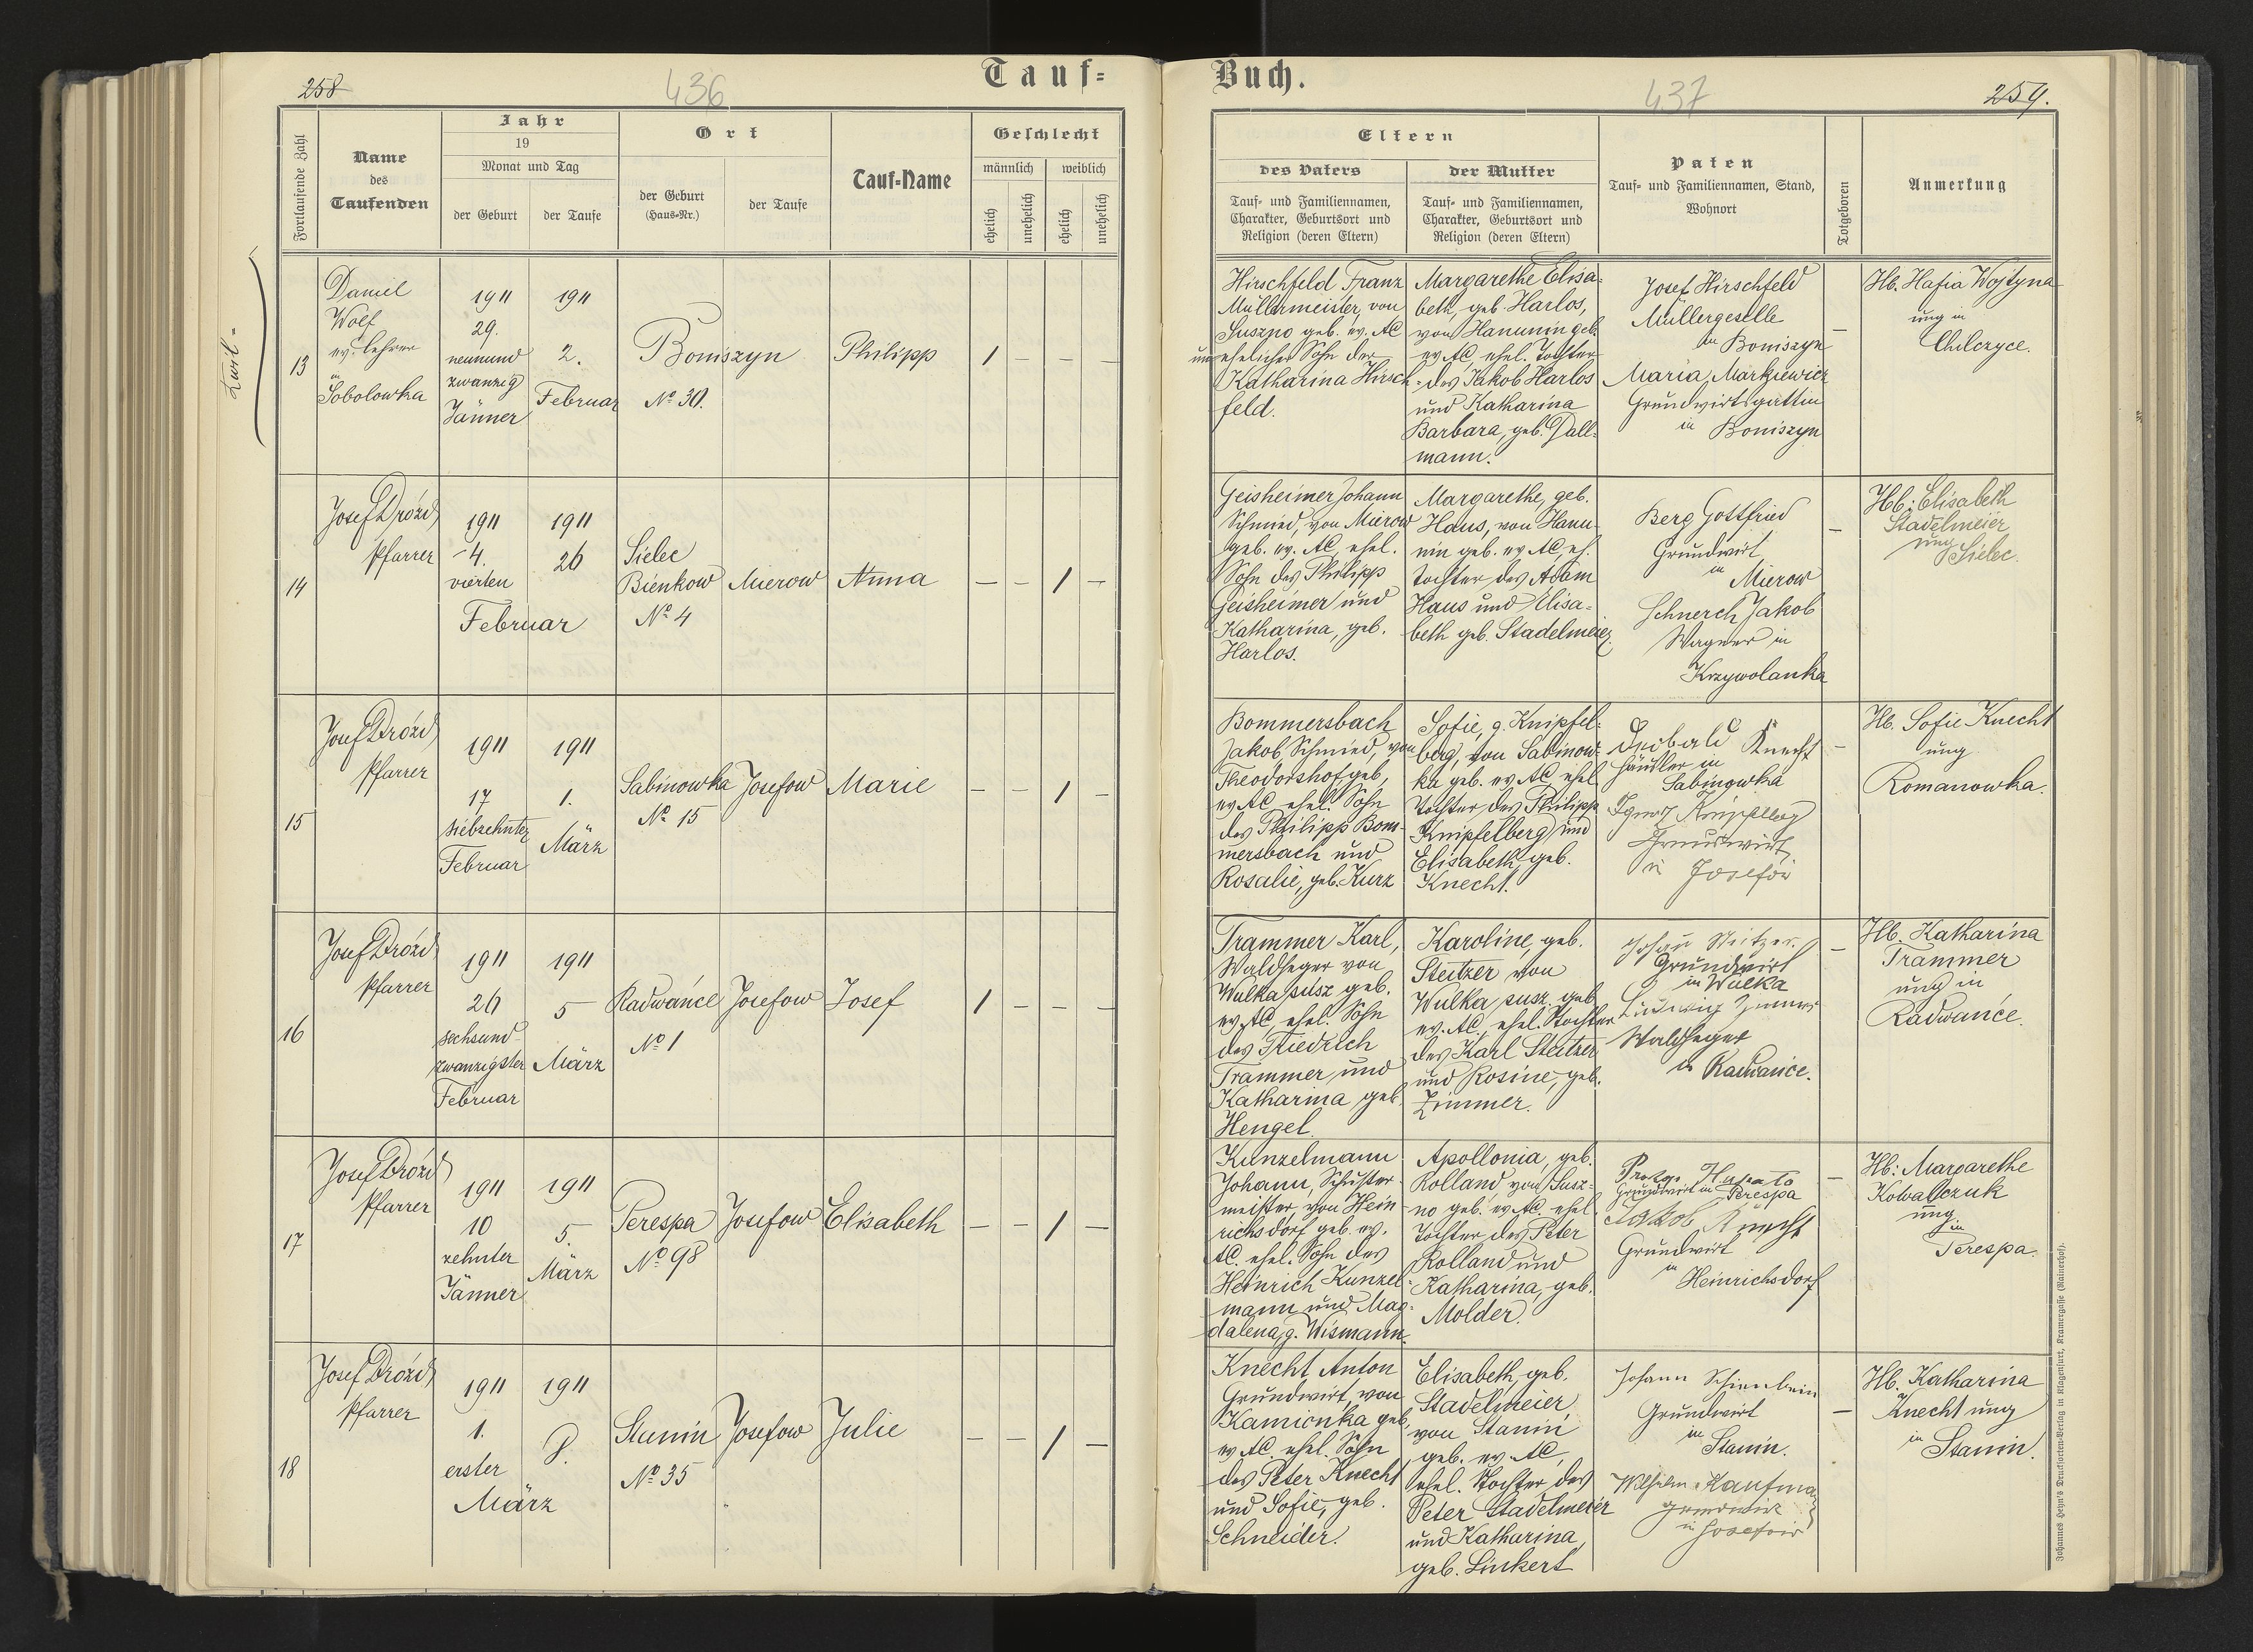 258
436
Tauf=
Fortlaufende Zahl
Name
des
Taufenden
Jahr
19
Monat und Tag
der Geburt
der Taufe
Ort
der Geburt
(Haus=Nr.)
der Taufe
Tauf=Name
Geschlecht
männlich
weiblich
ehelich
unehelich
ehelich
unehelich
13
Daniel
Wolf
ev. Lehrer
in
Sobolowka
1911
29.
neunund
zwanzig
Jänner
1911
2.
Februar
Boniszyn
No 30.
Philipp
1 – – –
14
Josef Drózd
Pfarrer
1911
4.
vierten
Februar
1911
26
Sielec
Bienkow
No 4
Mierow
Anna
– – 1 –
15
Josef Drózd
Pfarrer
1911
17
siebzehnter
Februar
1911
1.
März
Sabinowka
No 15
Josefow
Marie
– – 1 –
16
Josef Drózd
Pfarrer
1911
26
sechsund
zwanzigster
Februar
1911
5
März
Radwańce
No 1
Josefow
Josef
1 – – –
17
Josef Drózd
Pfarrer
1911
10
zehnter
Jänner
1911
5.
März
Perespa
No 98
Josefow
Elisabeth
– – 1 –
18
Josef Drózd
Pfarrer
1911
1.
erster
März
1911
8.
Stanin
No 35
Josefow
Julie
– – 1 –
Buch.
437
259.
Eltern
des Vaters
Tauf= und Familiennamen,
Charakter, Geburtsort und
Religion (deren Eltern)
der Mutter
Tauf= und Familiennamen,
Charakter, Geburtsort und
Religion (deren Eltern)
Paten
Tauf= und Familiennamen, Stand,
Wohnort
Totgeboren
Anmerkung
Hirschfeld Franz
Müllermeister, von
Suszno geb. ev. AC
unehelicher Sohn der
Katharina Hirsch=
feld.
Margarethe Elisa=
beth, geb. Harlos,
von Hanunin geb.
ev. AC, ehel. Tochter
des Jakob Harlos
und Katharina
Barbara, geb. Dall=
mann.
Josef Hirschfeld
Müllergeselle
in Boniszyn
Maria Markiewicz
Grundwirtsgattin
in Boniszyn
–
Hb. Hafia Wojtyna
ung in
Chilczyce.
Geisheimer Johann
Schmied, von Mierow
geb. ev. AC, ehel.
Sohn des Philipp
Geisheimer und
Katharina, geb.
Harlos.
Margarethe, geb.
Haus, von Hanu=
nin geb. ev AC, eh.
Tochter des Adam
Haus und Elisa=
beth geb. Stadelmeier
Berg Gottfried
Grundwirt
in
Mierow
Schnerch Jakob
Wagner in
Krzywolanka
–
Hb: Elisabeth
Stadelmeier
ung
Sielec.
Bommersbach
Jakob, Schmied, von
Theodorshof geb,
ev AC, ehel. Sohn
des Philipp Bom=
mersbach und
Rosalie, geb. Kurz
Sofie, g. Knipfel=
berg, von Sabinow=
ka geb. ev AC, ehel
Tochter des Philipp
Knipfelberg und
Elisabeth, geb.
Knecht.
Knecht
Häusler in
Sabinowka
Grundwirt
in Josefów
–
Hb. Sofie Knecht
ung
Romanowka.
Trammer Karl,
Waldheger von
Wulka susz geb.
ev. AC, ehel. Sohn
des Friedrich
Trammer und
Katharina geb.
Hengel.
Karoline, geb.
Steitzer von
Wulka susz. geb
ev. AC, ehel. Tochter
des Karl Steitzer
und Rosine, geb.
Zimmer.
Johann Steitzer
Grundwirt
in Wulka
Ludwig Zimmer
Waldheger
in Radwańce.
–
Hb. Katharina
Trammer
ung in
Radwańce.
Kunzelmann
Johann, Schuster=
meister, von Hein=
richsdorf geb. ev.
AC. ehel. Sohn des
Heinrich Kunzel=
mann und Mag=
dalena, g. Wismann.
Apollonia, geb.
Rolland von Susz=
no geb. ev. AC, ehel.
Tochter des Peter
Rolland und
Katharina, geb.
Molder.
Grundwirt in Perespa
Jakob Knecht
Grundwirt
in
Heinrichsdorf
–
Hb: Margarethe
Kowalczuk
ung
in
Perespa.
Knecht Anton
Grundwirt, von
Kamionka geb.
ev AC, ehel. Sohn
des Peter Knecht
und Sofie, geb.
Schneider.
Elisabeth, geb.
Stadelmeier
von Stanin
geb. ev. AC,
ehel. Tochter des
Peter Stadelmeier
und Katharina,
geb. Linkert
Johann Schienbein
Grundwirt
in
Stanin.
Wilhelm Kaufman
Grundwirt
in Josefow
–
Hb. Katharina
Knecht ung
in Stanin.
Johannes Heyn's Drucksorten-Verlag in Klagenfurt, Kramergasse (Rainerhof).